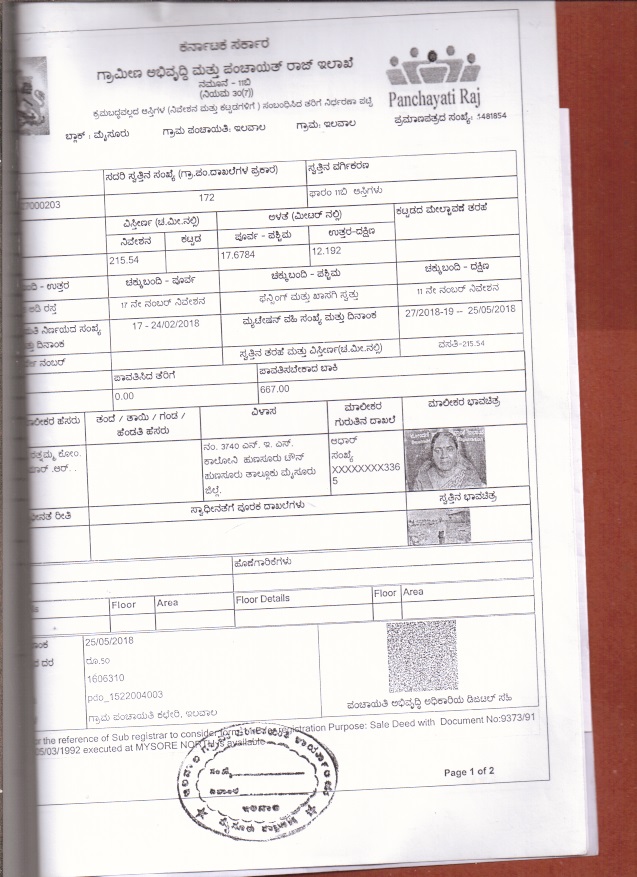 ಕರ್ನಾಟಕ ಸರ್ಕಾರ
ಗ್ರಾಮೀಣ ಅಭಿವೃದ್ಧಿ ಮತ್ತು ಪಂಚಾಯತ್ ರಾಜ್ ಇಲಾಖೆ
ನಮೂನೆ - 11ಬಿ
(ನಿಯಮ 30(7))
Panchayati Raj
ಕ್ರಮಬದ್ಧವಲ್ಲದ ಆಸ್ತಿಗಳ (ನಿವೇಶನ ಮತ್ತು ಕಟ್ಟಡಗಳಿಗೆ ) ಸಂಬಂಧಿಸಿದ ತೆರಿಗೆ ನಿರ್ಧರಣಾ ಪಟ್ಟಿ
ಬ್ಲಾಕ್ : ಮೈಸೂರು ಗ್ರಾಮ ಪಂಚಾಯತಿ: ಇಲವಾಲ ಗ್ರಾಮ: ಇಲವಾಲ ಪ್ರಮಾಣಪತ್ರದ ಸಂಖ್ಯೆ: 5481854
ಸದರಿ ಸ್ವತ್ತಿನ ಸಂಖ್ಯೆ (ಗ್ರಾ.ಪಂ.ದಾಖಲೆಗಳ ಪ್ರಕಾರ) ಸ್ವತ್ತಿನ ವರ್ಗೀಕರಣ
7000203 172 ಫಾರಂ 11ಬಿ ಆಸ್ತಿಗಳು
ವಿಸ್ತೀರ್ಣ (ಚ.ಮೀ.ನಲ್ಲಿ) ಅಳತೆ (ಮೀಟರ್ ನಲ್ಲಿ) ಕಟ್ಟಡದ ಮೇಲ್ಛಾವಣಿ ತರಹೆ
ನಿವೇಶನ ಕಟ್ಟಡ ಪೂರ್ವ - ಪಶ್ಚಿಮ ಉತ್ತರ-ದಕ್ಷಿಣ
215.54 17.6784 12.192
ಬಂದಿ - ಉತ್ತರ ಚಕ್ಕುಬಂದಿ - ಪೂರ್ವ ಚಕ್ಕುಬಂದಿ - ಪಶ್ಚಿಮ ಚಕ್ಕುಬಂದಿ - ದಕ್ಷಿಣ
ಅಡಿ ರಸ್ತೆ 17 ನೇ ನಂಬರ್ ನಿವೇಶನ ಫೆನ್ಸಿಂಗ್ ಮತ್ತು ಖಾಸಗಿ ಸ್ವತ್ತು 11 ನೇ ನಂಬರ್ ನಿವೇಶನ
ನಿರ್ಣಯದ ಸಂಖ್ಯೆ 17 - 24/02/2018 ಮ್ಯುಟೇಷನ್ ವಹಿ ಸಂಖ್ಯೆ ಮತ್ತು ದಿನಾಂಕ 27/2018-19 -- 25/05/2018
ದಿನಾಂಕ
ನಂಬರ್ ಸ್ವತ್ತಿನ ತರಹೆ ಮತ್ತು ವಿಸ್ತೀರ್ಣ(ಚ.ಮೀ.ನಲ್ಲಿ) ವಸತಿ-215.54
ಪಾವತಿಸಿದ ತೆರಿಗೆ ಪಾವತಿಸಬೇಕಾದ ಬಾಕಿ
0.00 667.00
ಹೆಸರು ತಂದೆ / ತಾಯಿ / ಗಂಡ / ಹೆಂಡತಿ ಹೆಸರು ವಿಳಾಸ ಮಾಲೀಕರ ಗುರುತಿನ ದಾಖಲೆ ಮಾಲೀಕರ ಭಾವಚಿತ್ರ
ನಂ. 3740 ಎನ್. ಇ. ಎಸ್.
ಕಾಲೋನಿ ಹುಣಸೂರು ಟೌನ್
ಹುಣಸೂರು ತಾಲ್ಲೂಕು ಮೈಸೂರು
ಜಿಲ್ಲೆ.
ಆಧಾರ್
ಸಂಖ್ಯೆ
XXXXXXXX336
5
ರೀತಿ ಸ್ವಾಧೀನತೆಗೆ ಪೂರಕ ದಾಖಲೆಗಳು ಸ್ವತ್ತಿನ ಭಾವಚಿತ್ರ
ಹೊಣೆಗಾರಿಕೆಗಳು
Floor Area Floor Details Floor Area
25/05/2018
ದರ ರೂ.50
1606310
pdo_1522004003
ಗ್ರಾಮ ಪಂಚಾಯತಿ ಕಛೇರಿ, ಇಲವಾಲ ಪಂಚಾಯತಿ ಅಭಿವೃದ್ಧಿ ಅಧಿಕಾರಿಯ ಡಿಜಿಟಲ್ ಸಹಿ
the reference of Sub registrar to consider registration Purpose: Sale Deed with Document No:9373/91
05/03/1992 executed at MYSORE NORTH is available
ಸಂಖ್ಯೆ
ದಿನಾಂಕ
ಇಲವಾಲ
ಮೈಸೂರು ತಾಲ್ಲೂಕು
Page 1 of 2